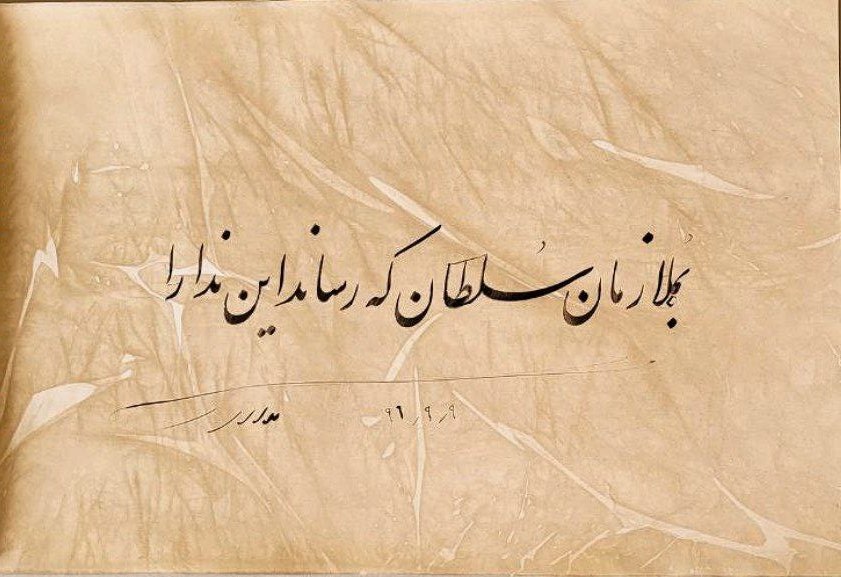 بملازمان سلطان که رساند این ندا را
۹۶٫۹٫۹